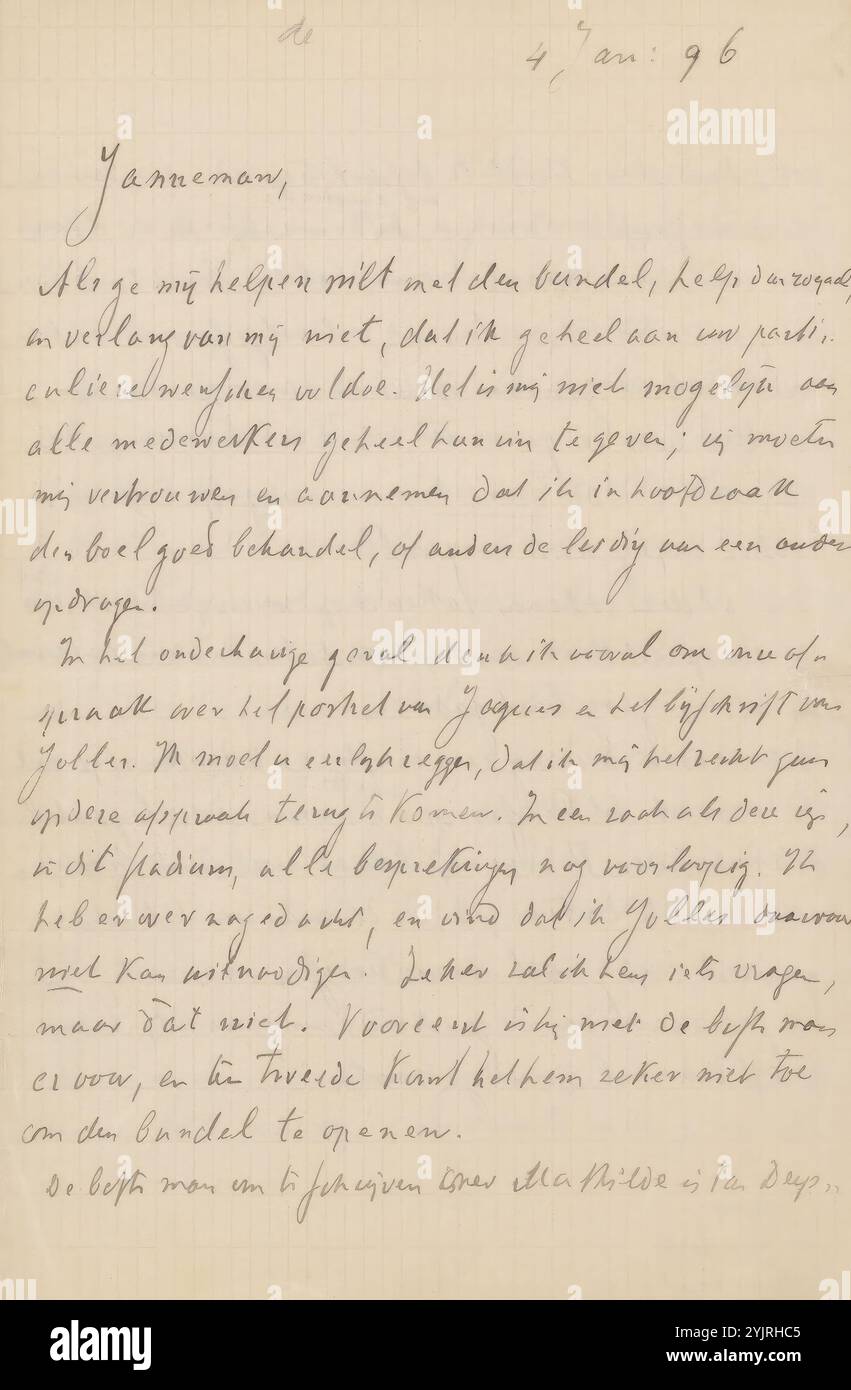 de
4 Jan: 96
Janneman,
Als ge mij helpen wilt met den bundel, help dan royaal,
en verlang van mij niet, dat ik geheel aan uw parti-
culiere wenschen voldoe. Het is mij niet mogelijk aan
alle medewerkers geheel hun zin te geven; zij moeten
mij vertrouwen en aannemen dat ik in hoofdzaak
den boel goed behandel, of anders de leiding aan een ander
opdragen.
In het onderhavige geval denk ik vooral om onze af-
spraak over het portret van Jacques en het bijschrift van
Jolles. Ik moet u eerlijk zeggen, dat ik mij het recht gun
op deze afspraak terug te komen. In een zaak als deze zijn,
in dit stadium, alle besprekingen nog voorloopig. Ik
heb er over nagedacht, en vind dat ik Jolles daarvoor
niet kan uitnoodigen. Zeker zal ik hem iets vragen,
maar dàt niet. Vooreerst is hij niet de beste man
er voor, en ten tweede komt het hem zeker niet toe
om den bundel te openen.
De beste man om te schrijven over Mathilde is van Deyss
alamy
Image ID: 2YJRHC5
www.alamy.com